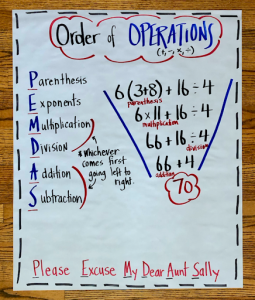 Order of OPERATIONS
(+, -, ×, ÷)
Parenthesis
Exponents
Multiplication
Division
Addition
Subtraction
* Whichever
comes first
going left to
right.
6(3+8)+16÷4
parenthesis
6×11+16÷4
multiplication
66+16÷4
division
66+4
addition
70
Please Excuse My Dear Aunt Sally